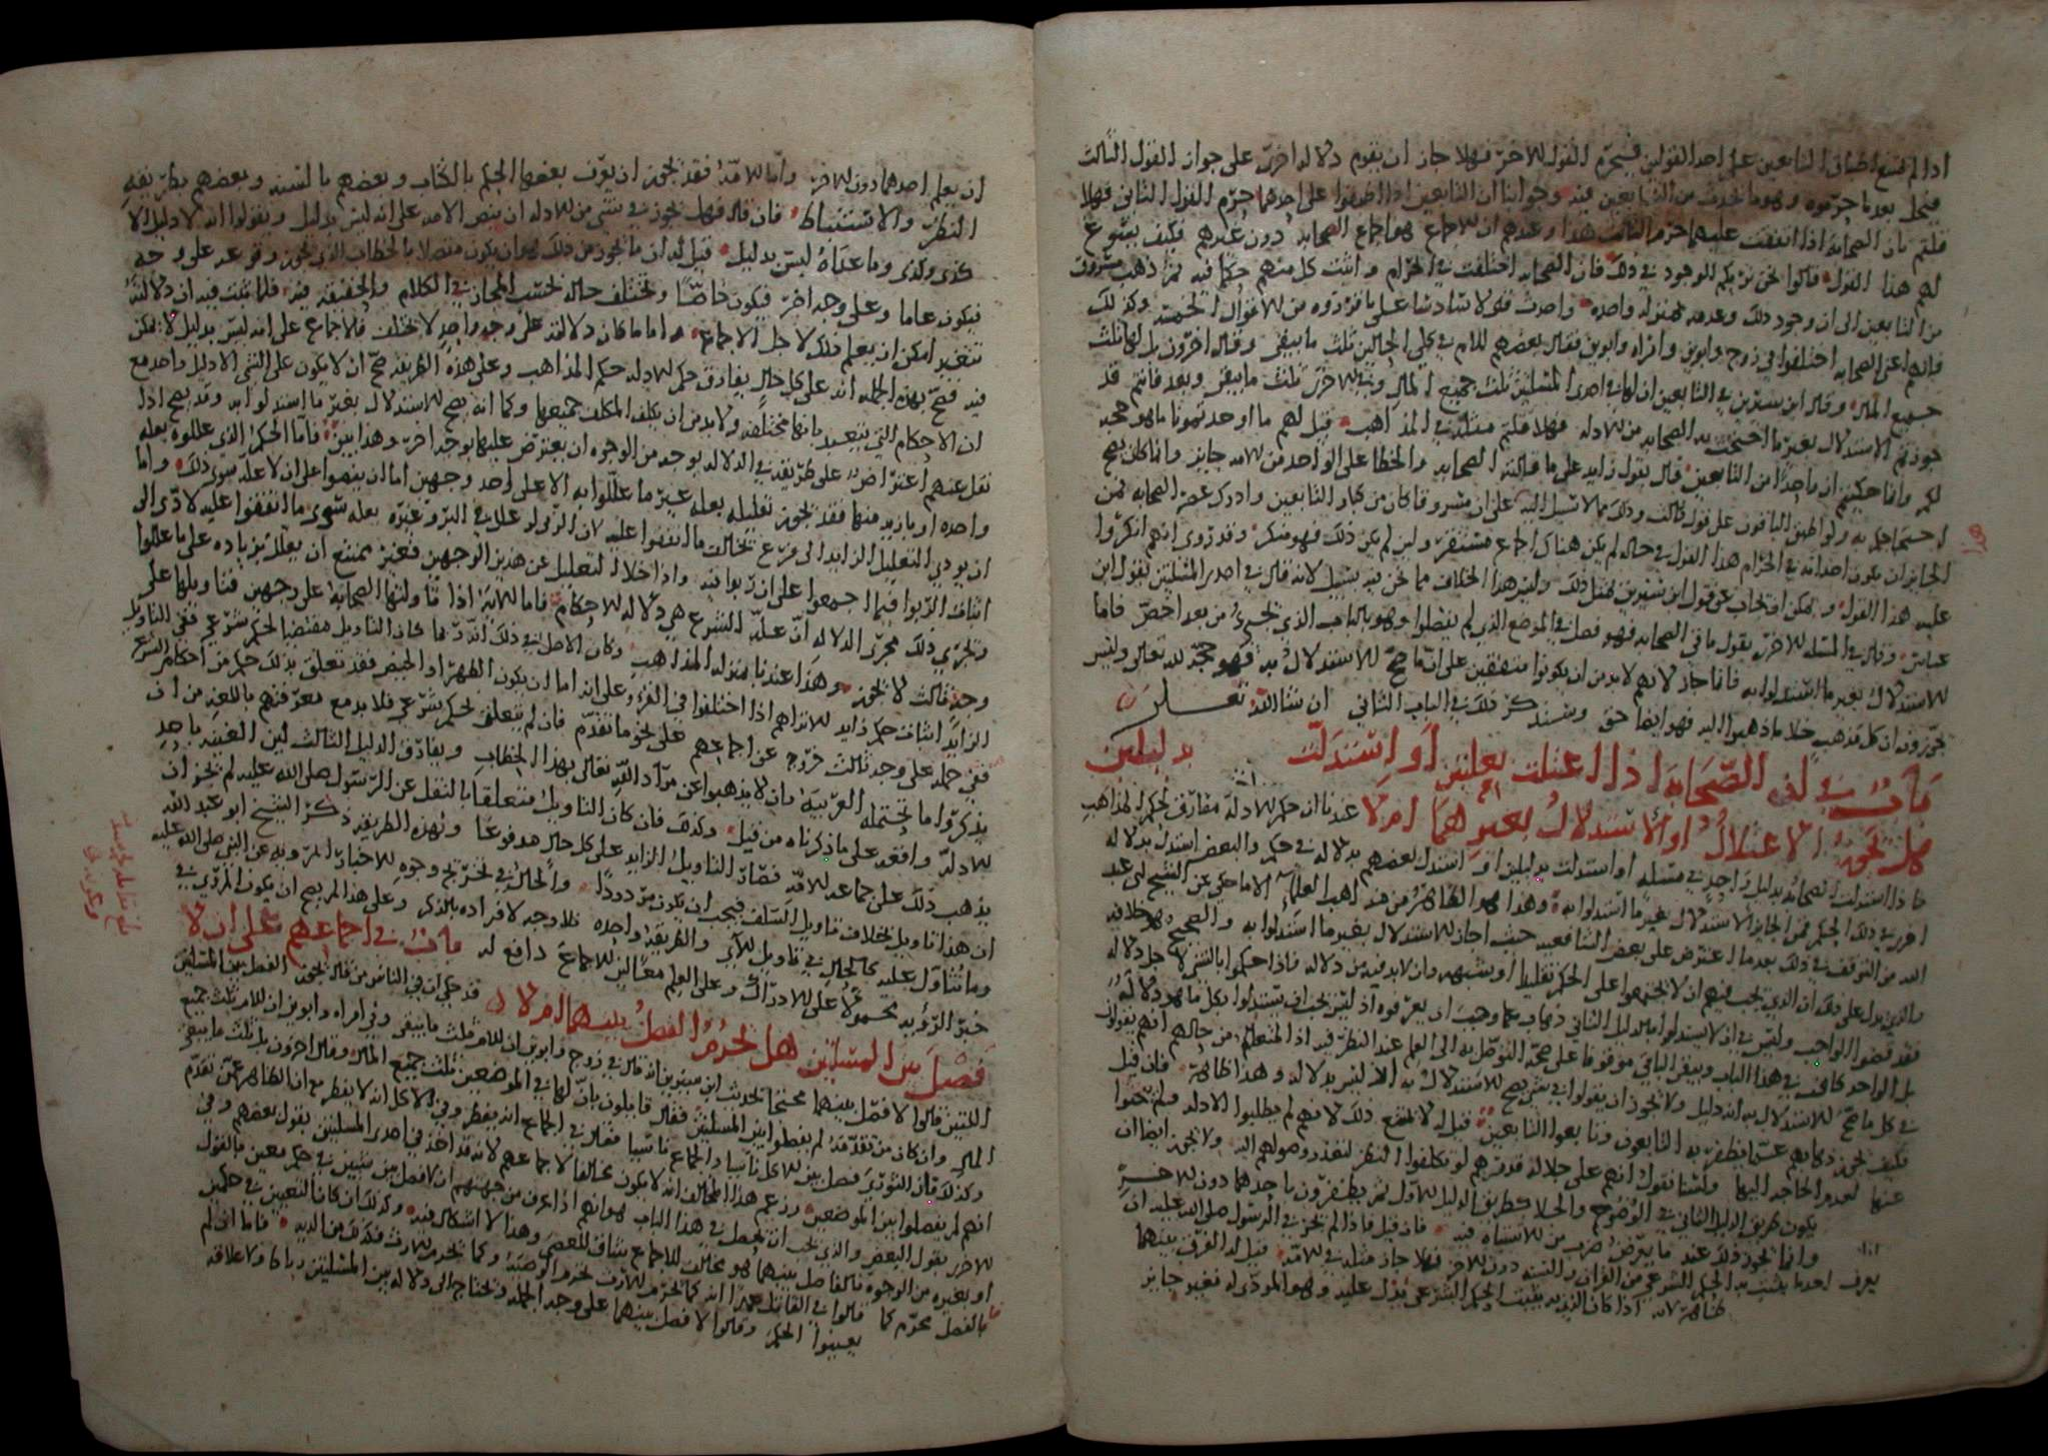 اذا لم يمتنع اطباق التابعين على احد القولين فيحرم القول الاخر فهلا جاز ان يقوم دلاله اخرى على جواز القول الثالث
فيحل بعد ما حرموه وهو ما يحدث من التابعين فيه وجوابنا ان التابعين اذا اطبقوا على احدهما حرم القول الثاني فهلا
قلتم بان الصحابة اذا اتفقت عليهما حرم الثالث هذا وعندهم ان الاجماع هو اجماع الصحابه دون غيرهم فكيف يسوغ
لهم هذا القول قالوا نحن نريكم الموجود في ذلك فان الصحابه اختلفت في الحرام واثبت كل منهم حكما فيه ثم ذهب مسروق
من التابعين الى ان وجود ذلك وعدمه بمنزله واحده واحدث قولا سادسا على ما قرروه من الاقوال الخمسة وكذلك
فانهم اعنى الصحابه اختلفوا في زوج وابوين وامراه وابوين فقال بعضهم للام في كلى الحالين ثلث ما يبقى وقال اخرون بل لها ثلث
جميع المال وقال ابن سيرين في التابعين ان لها في احدى المسئلتين ثلث جميع المال وفي الاخرى ثلث ما يبقى وبعد فانتم قد
جوزتم الاستدلال بغير ما احتجت به الصحابه من الادله فهلا قلتم مثله في المذاهب قيل لهم ما اوجدتمونا ما هو حجه
لكم وانما حكيتم ان واحدا من التابعين قال بقول زايد على ما قالته الصحابه والخطا على الواحد من الامه جايز وانما كان يصح
احتجاجكم به ولو اطبق الباقون على قول كذلك وذلك مما لا سبيل اليه على ان مسروقا كان من كبار التابعين وادرك عصر الصحابه فمن
الجايز ان يكون احدث في الحرام هذا القول في حاله لم يكن هناك اجماع مستقر ولين لم يكن ذلك فهو منكر وقد روى انهم انكروا
عليه هذا القول ويمكن ان يجاب عن قول ابن سيرين بمثل ذلك وليس هذا الخلاف مما نحن فيه بسبيل لانه قال في احدى المسئلتين بقول ابن
عباس وقال في المسئله الاخرى بقول باقي الصحابه فهو فصل في الموضع الذي لم يفصلوا وهو بالباب الذي يجيء من بعد اخص فاما
الاستدلال بغير ما استدلوا به فانما جاز لانهم لا بد من ان يكونوا متفقين على ان ما صح الاستدلال به فهو حجة لله تعالى وليس
يجوزون ان كل مذهب خلا ما ذهبوا اليه فهو ايضا حق وسنذكر ذلك في الباب الثاني ان شا الله تعالى
باب في ان الصحابة اذا اعتلت بعلتين او استدلت بدليلين
هل يجوز الاعتلال او الاستدلال بغيرهما ام لا عندنا ان حكم الادلة مفارق لحكم المذاهب
فاذا استدلت الصحابه بدليل واحد في مسئله او استدلت بدليلين او استدل بعضهم بدلاله في حكم والبعض استدل بدلاله
اخرى في ذلك الحكم فمن الجايز الاستدلال بغير ما استدلوا به وهذا هو الظاهر من مذاهب العلماء الا ما حكى عن الشيخ ابي عبد
الله من التوقف في ذلك بعد ما اعترض على بعض الشافعيه حيث اجاز الاستدلال بغير ما استدلوا به والصحيح هو خلافه
والذي يدل على ذلك ان الذي يجب فيهم ان لا يجتمعوا على الحكم تقليدا او بشبهه وان لا بد فيه من دلاله فاذا حكموا بالشيء لاجل دلاله
فقد قضوا الواجب وليس في ان لا يستدلوا بالدليل الثاني ذهاب عما وجب ان يعرفوه اذ ليس يجب ان يستدلوا بكل ما هو دلاله
بل الواحد كاف في هذا الباب ويبقى الباقي موقوفا على صحة التوصل به الى العلم عند النظر فيه اذ المتعلم من حالهم انهم يقولون
في كل ما صح الاستدلال به انه دليل ولا يجوز ان يقولوا في شي يصح الاستدلال به انه ليس بدلاله وهذا ظاهر فان قيل
فكيف يجوز ذهابهم عما يظفر به التابعون وتابعوا التابعين قيل له لا يمتنع ذلك لانهم لم يطلبوا الادله فلم يحتجوا
عنها لعدم الحاجه اليها ولسنا نقول انهم على جلاله قدرهم لو تكلفوا النظر لتعذر وصولهم اليه ولا يجوز ايضا ان
يكون طريق الدليل الثاني في الوضوح والجلا كطريق الدليل الاول ثم يظفرون باحدهما دون الاخر
وانما يجوز ذلك عند ما يعرض ضرب من الاشتباه فيه فان قيل فاذا لم يجز في الرسول صلى الله عليه ان
يعرف احد ما يثبت به الحكم الشرعي من القران والسنه دون الاخر فهلا جاز مثله في الامة قيل له الفرق بينهما
ظاهر لانه اذا كان الذي به يثبت الحكم الشرعي يدل عليه وهو المودى له فغير جايز
هذا
ان يعلم احدهما دون الاخر واما الامة فقد يجوز ان يعرف بعضها الحكم بالكتاب وبعضهم بالسنه وبعضهم بطريقه
النظر والاستنباط فان قال فهل يجوز في شي من الادله ان ينص الامه على انه ليس بدليل ويقولوا انه لا دليل الا
كذى وكذى وما عداه ليس بدليل قيل له ان ما يجوز من ذلك هو ان يكون متصلا بالخطاب الذي يجوز وقوعه على وجه
فيكون عاما وعلى وجه اخر فيكون خاصا ويختلف حاله بحسب المجاز في الكلام والحقيقه فيه فلما ثبت فيه ان دلالته
تتغير امكن ان يعلم ذلك لاجل الاجماع واما ما كان دلالته على وجه واحد لا يختلف فالاجماع على انه ليس بدليل لا يمكن
فيه فصح بهذه الجمله انه على كل حال يفارق حكم الادله حكم المذاهب وعلى هذه الطريقه صح ان لا يكون على الشي الا دليل واحد مع
ان الاحكام التي يتعبد بها مختلفه ولا بد من ان يكلف المكلف جميعها وكما انه يصح الاستدلال بغير ما استدلوا به وقد يصح اذا
نقل عنهم اعتراض على طريقه في الدلاله بوجه من الوجوه ان يعترض عليها بوجه اخر وهذا بين فاما الحكم الذي عللوه بعله
واحده او بازيد منها فقد يجوز تعليله بعله غير ما عللوا به الا على احد وجهين اما ان ينصوا على ان لا علة سوى ذلك واما
ان يودي التعليل الزايد الى فرع يخالف ما اتفقوا عليه لان الربوا لو علل في البر وغيره بعله سوى ما اتفقوا عليه لادى الى
اثبات الربوا فيما اجمعوا على ان لا ربوا فيه واذا خلا التعليل عن هذين الوجهين فغير ممتنع ان يعلل بزياده على ما عللوا
ويجري ذلك مجرى الدلاله لان علة الشرع هي دلاله الاحكام فاما الاية اذا تاولتها الصحابة على وجهين فتاويلها على
وجه ثالث لا يجوز وهذا عندنا بمنزله المذاهب وكان الاصل في ذلك انه ربما كان التاويل مقتضيا لحكم شرعي ففي التاويل
الزايد اثبات حكم زايد الا تراهم اذا اختلفوا في القرؤ وعلى انه اما ان يكون الطهر او الحيض فقد تعلق بذلك حكم من احكام الشرع
ففي حمله على وجه ثالث خروج عن اجماعهم على نحو ما تقدم فان لم يتعلق بحكم شرعي فلا بد مع معرفتهم باللغه من ان
يذكروا ما تحتمله العربية وان لا يذهبوا عن مراد الله تعالى بهذا الخطاب ويفارق الدليل الثالث لان الغنيه باحد
الادلة واقعه على ما ذكرناه من قبل وكذلك فان كان التاويل متعلقا بالنقل عن الرسول صلى الله عليه لم يجز ان
يذهب ذلك على جماعه الامة فصار التاويل الزايد على كل حال مدفوعا وبهذه الطريقه ذكر الشيخ ابو عبد الله
ان هذا تاويل بخلاف تاويل السلف فيجب ان يكون مردودا والحال في تخريج وجوه الاخبار المرويه عن النبي صلى الله عليه
وما تتناول عليه كالحال في تاويل الاي والطريقة واحده فلا وجه لافراده بالذكر وعلى هذا لم يصح ان يكون المروي في
خبر الرؤيه محمولا على الادراك وعلى العلم معا لان الاجماع دافع له باب في اجماعهم على ان لا
فصل بين المسئلتين هل يحرم الفصل بينهما ام لا قد حكي ان في الناس من قال يجوز الفصل بين المسئلتين
اللتين قالوا لا فصل بينهما محتجا بحديث ابن سيرين انه قال في زوج وابوين ان للام ثلث ما يبقى وفي امراه وابوين ان للام ثلث جميع
المال وان كان من تقدمه لم يفصلوا بين المسئلتين فقال قايلون بان لها في الموضعين ثلث جميع المال وقال اخرون بل ثلث ما يبقى
وكذلك فان الثوري فصل بين الاكل ناسيا والجماع ناسيا فقال في الجماع انه يفطر وفي الاكل انه لا يفطر مع ان الظاهر عمن تقدم
انهم لم يفصلوا بين الموضعين وزعم هذا المخالف انه لا يكون مخالفا لاجماعهم لانه قد اخذ في احدى المسئلتين بقول بعضهم وفي
الاخرى بقول البعض والذي يجب ان يحصل في هذا الباب هو انهم اذا عرف من جهتهم ان لا فصل بين شيئين في حكم معين بالقول
او بغيره من الوجوه فالفاصل بينهما هو مخالف للاجماع وهذا لا اشكال فيه وكذلك ان كان التعيين في حكمين
بالفصل محرم كما قالوا في القاتل عمدا انه كما يحرم الارث يحرم الوصية وكما يحرم الارث فكذلك من الدية فاما ان لم
يعينوا الحكم وقالوا لا فصل بينهما على وجه الجمله فيحتاج الى دلاله بين المسئلتين رباط وعلاقه